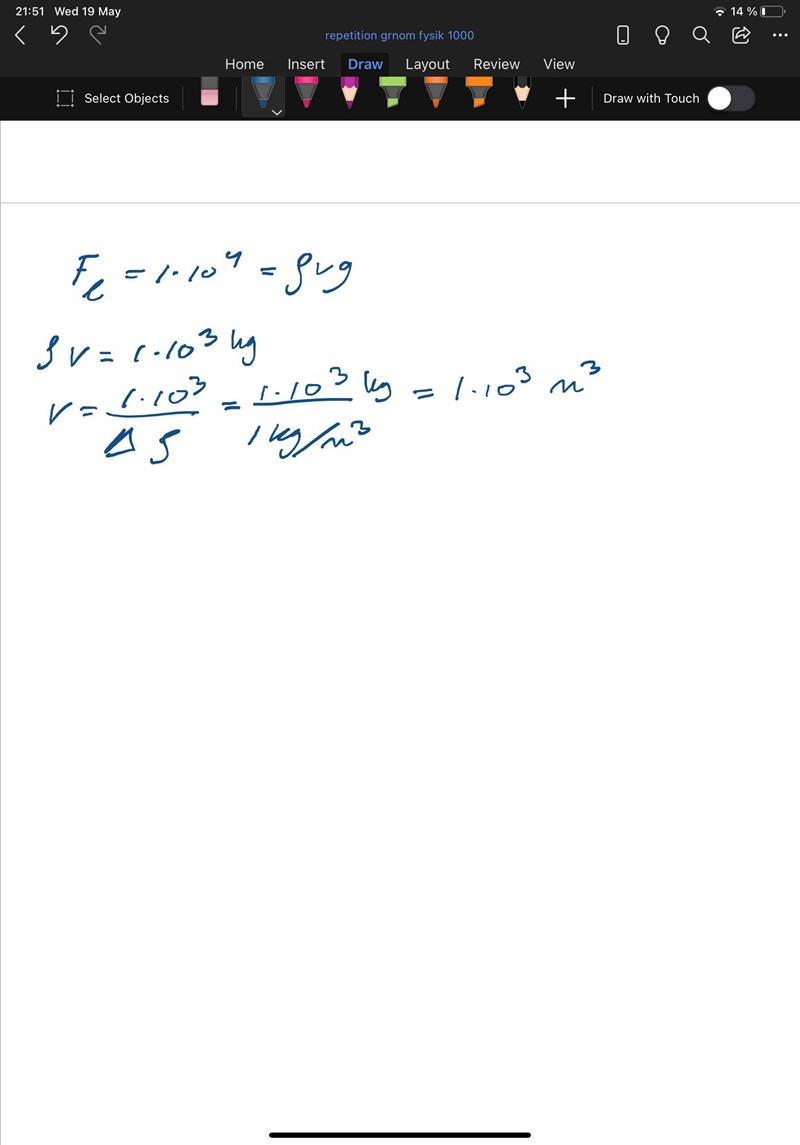 21:51 Wed 19 May 14 %
repetition grnom fysik 1000
Home Insert Draw Layout Review View
Select Objects Draw with Touch
Fℓ = 1·10⁴ = ρvg
ρv = 1·10³ kg
v = 1·10³ / Δρ = 1·10³ kg / 1 kg/m³ = 1·10³ m³